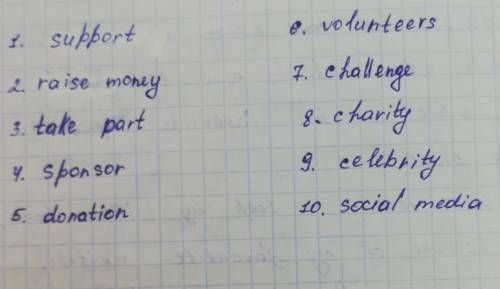 1. support
2. raise money
3. take part
4. sponsor
5. donation
6. volunteers
7. challenge
8. charity
9. celebrity
10. social media